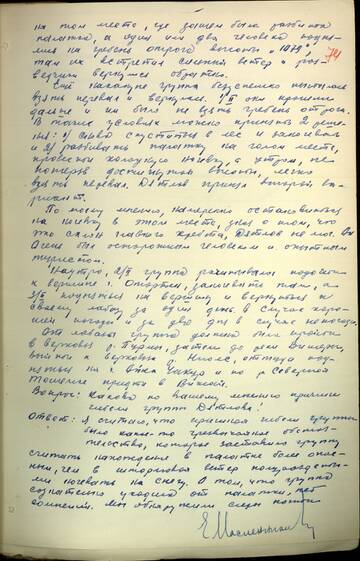 на том месте, где затем была разбита
палатка, а один или два человека подня-
лись на гребень отрога высоты "1079"
там их встретил сильный ветер и раз-
вернули вернулись обратно.
74
Ещё накануне группа безуспешно пыталась
взять перевал и вернулась. 1/II они прошли
дальше и им была не взять гребень отрога.
В таких условиях можно принять 2 реше-
ния: 1) снова спуститься в лес и заночевать
и 2) разбивать палатку на голом месте,
провести холодную ночёвку, а утром, не
потеряв достигнутой высоты, легко
взять перевал. Дятлов принял второй ва-
риант.
По моему мнению, намеренно остановиться
на ночёвку в этом месте, зная о том, что
это склон главного хребта, Дятлов не мог. Он
очень был осторожным человеком и опытным
туристом.
Наутро, 2/II группа рассчитывала подойти
к вершине г. Отортен, заночевать там, а
3/II подняться на вершину и вернуться к
своему лабазу за один день в случае хоро-
шей погоды и за два дня в случае непогоды.
От лабаза группа должна была пройти
в верховья р. Пурмы, затем до реки Вишеры,
выйти к верховью р. Ниолс, оттуда под-
няться на г. Ойка Чакур и по р. Северной
Тошемке придти в Вижай.
Вопрос: Какова по вашему мнению причина
гибели группы Дятлова?
Ответ: Я считаю, что причиной гибели группы
было какие-то чрезвычайные обстоя-
тельства, которые заставили группу
считать нахождение в палатке более опас-
ным, чем в штормовой ветер полураздеты-
ми ночевать на снегу. О том, что группа
сознательно уходила от палатки, нет
сомнений. Мы обнаружили следы
Е Масленников